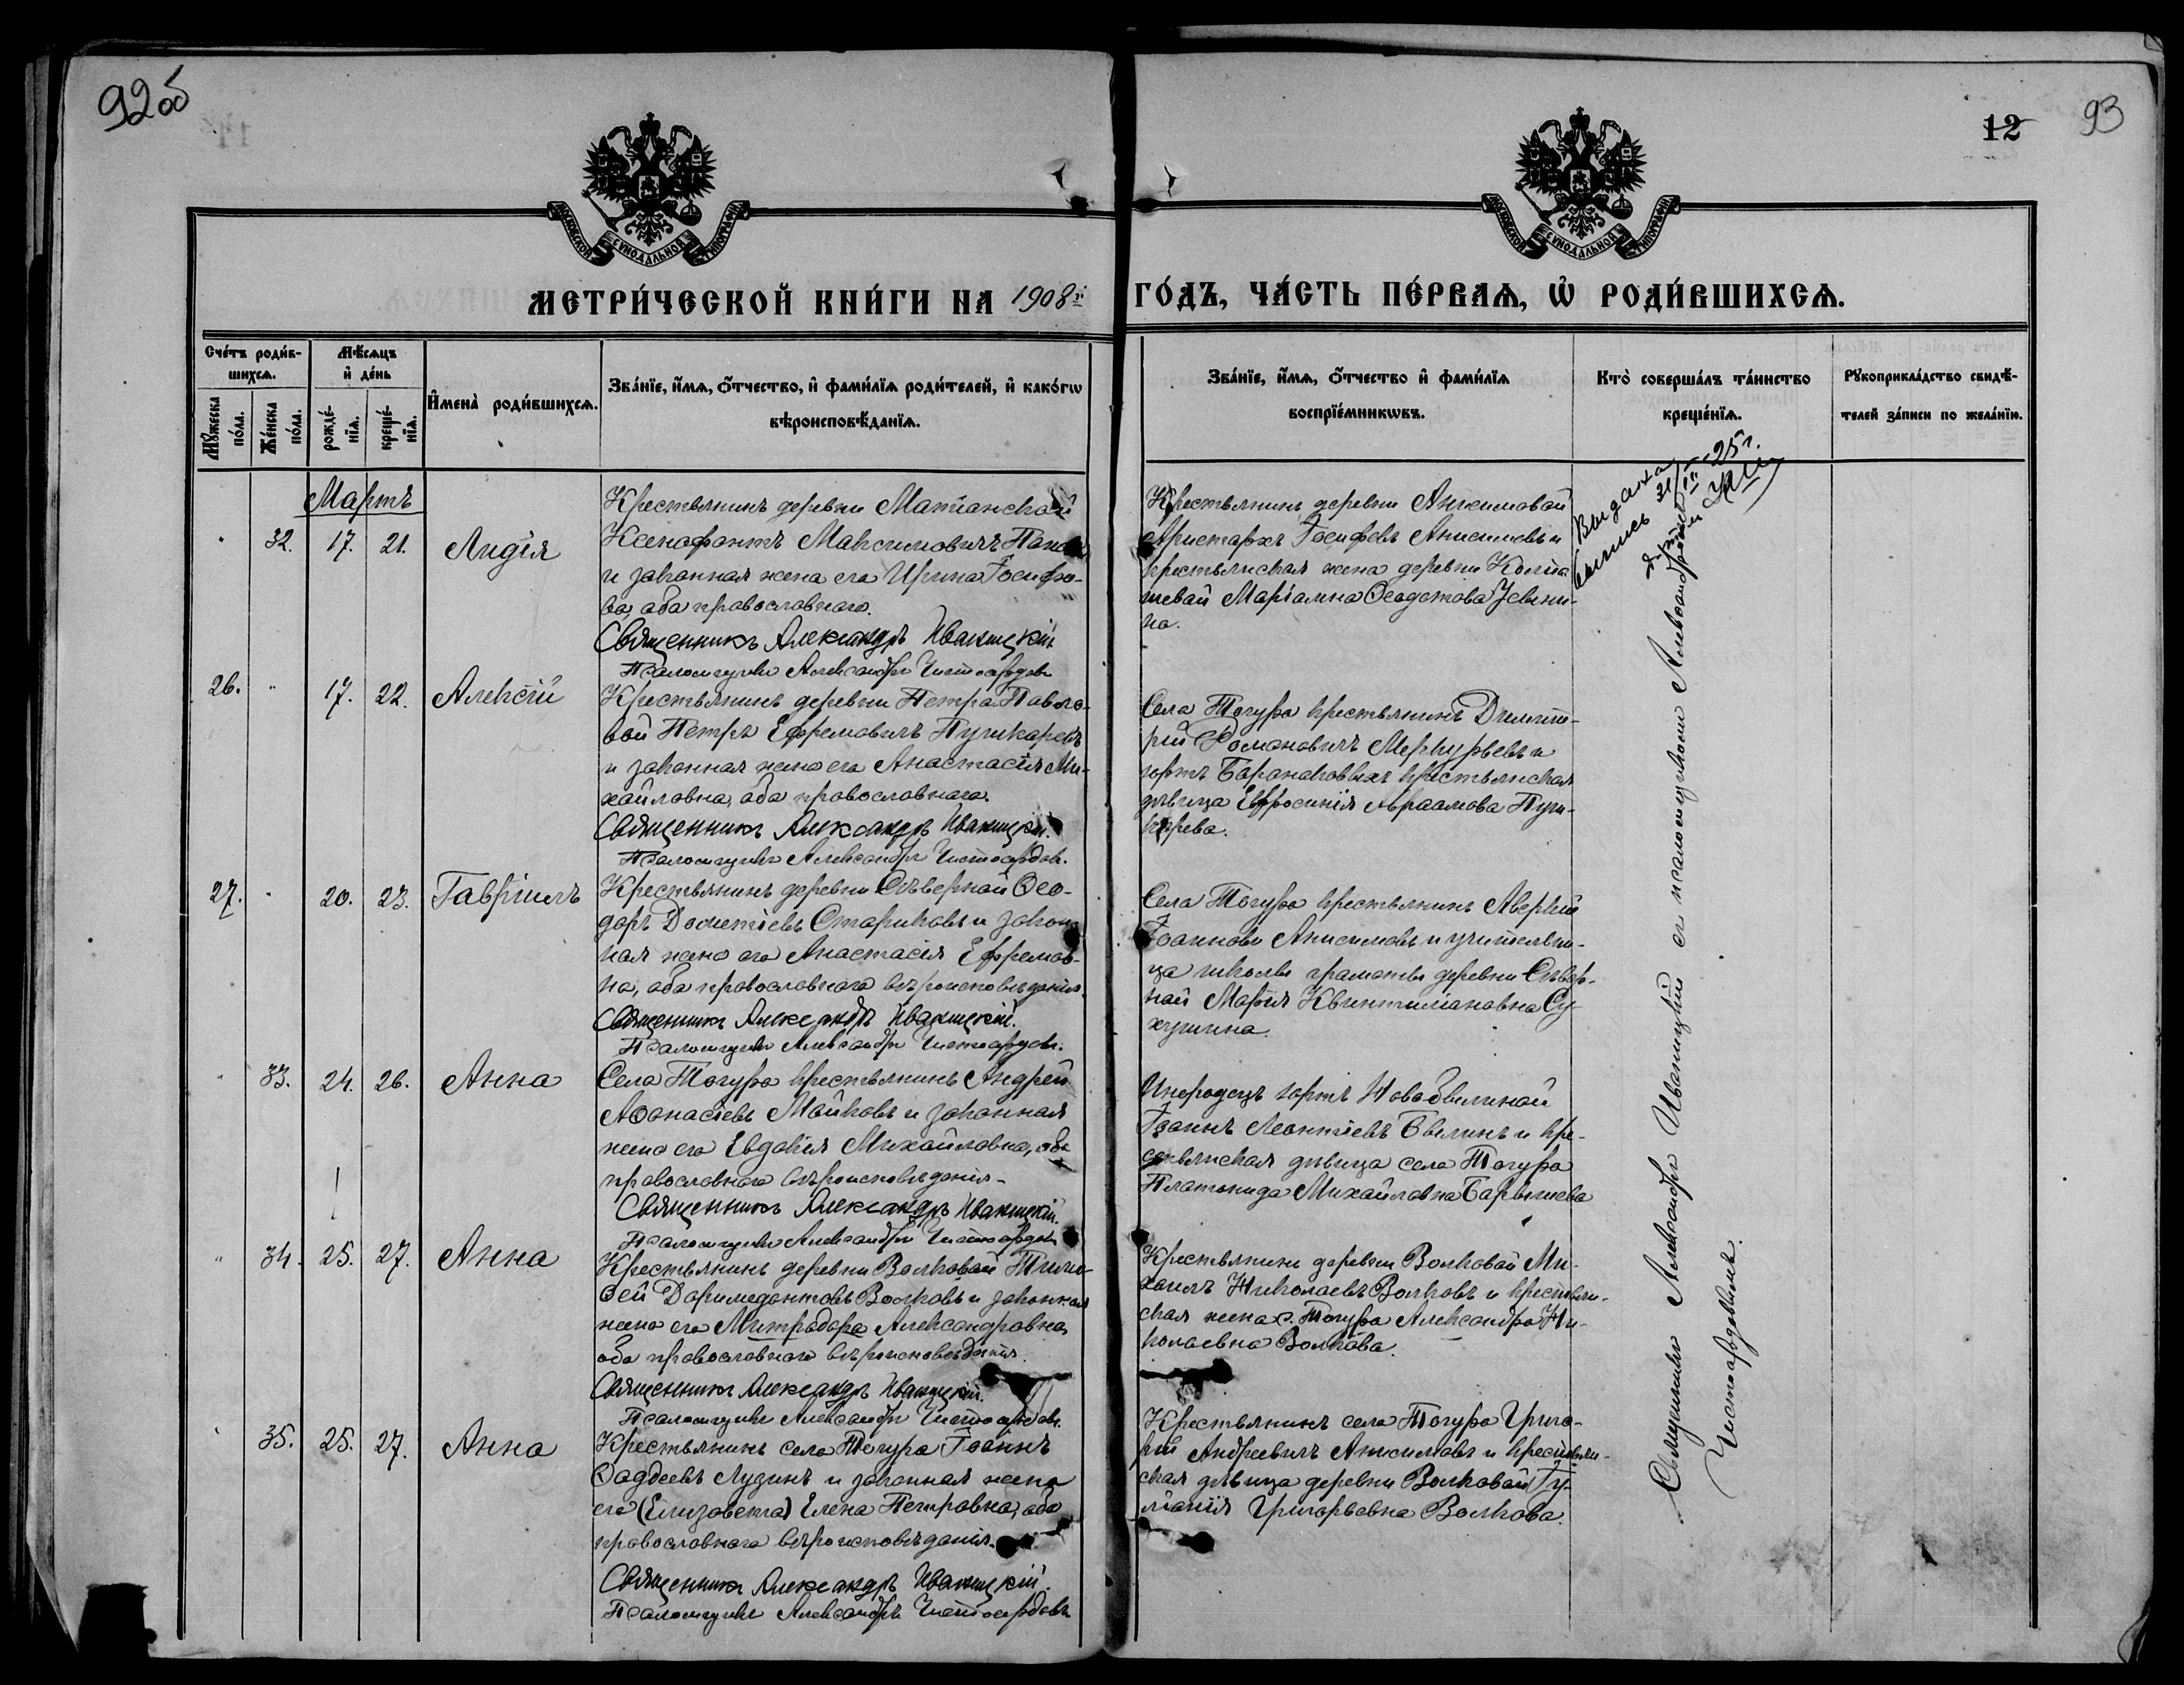 92 об
12
93
МОСКОВСКОЙ СѴНОДАЛЬНОЙ ТИПОГРАФІИ
МОСКОВСКОЙ СѴНОДАЛЬНОЙ ТИПОГРАФІИ
МЕТРИ́ЧЕСКОЙ КНИ́ГИ НА 1908й
ГО́ДЪ, ЧА́СТЬ ПЕ́РВАѦ, Ѡ҆ РОДИ́ВШИХСѦ.
Сче́тъ роди́в-
шихсѧ.
Мѣ́сѧцъ
и҆ де́нь
И҆мена̀ роди́вшихсѧ.
Зва́нїе, и҆́мѧ, ѻ҆́тчество, и҆ фами́лїѧ роди́телей, и҆ како́гѡ
вѣроисповѣ́данїѧ.
Мꙋ́жеска
по́ла.
Же́нска
по́ла.
рожде́-
нїѧ.
креще́-
нїѧ.
Зва́нїе, и҆́мѧ, ѻ҆́тчество и҆ фами́лїѧ
воспрїе́мникѡвъ.
Кто̀ соверша́лъ та́инство
креще́нїѧ.
Рꙋкоприкла́дство свидѣ́-
телей за́писи по жела́нїю.
Мартъ
32. 17. 21. Лидія
Крестьянинъ деревни Матіанской
Ксенофонтъ Максимовичъ
и законная жена его Ирина Іосифо-
ва, оба православнаго.
Священникъ Александръ Иваницкій
Псаломщикъ Александръ Чистосердовъ
Крестьянинъ деревни Анисимовой
Аристархъ Іосифовъ Анисимовъ и
крестьянская жена деревни Колпа-
шевой Маріамна Ѳеодотова
на.
Выдана
выпись 31/III-25 г.
26. " 17. 22. Алексій
Крестьянинъ деревни Петра-Павло-
вой Петръ Ефремовичъ Пушкаревъ
и законная жена его Анастасія Ми-
хайловна, оба православнаго.
Священникъ Александръ Иваницкій.
Псаломщикъ Александръ Чистосердовъ.
Села Тогура крестьянинъ Димит-
рій Романовичъ Меркурьевъ и
юртъ Баранаковыхъ крестьянская
дѣвица Евфросинія Авраамова Пуш-
карева.
27. " 20. 23. Гавріилъ
Крестьянинъ деревни Сѣверной Ѳео-
доръ Дометіевъ Стариковъ и закон-
ная жена его Анастасія Ефремов-
на, оба православнаго вѣроисповѣданія.
Священникъ Александръ Иваницкій.
Псаломщикъ Александръ Чистосердовъ.
Села Тогура крестьянинъ Аверкій
Іоанновъ Анисимовъ и учительни-
ца школы грамоты деревни Сѣвер-
ной Марія Квинтиліановна Су-
хушина.
" 33. 24. 26. Анна
Села Тогура крестьянинъ Андрей
Аѳанасіевъ Майковъ и законная
жена его Евдокія Михайловна, оба
православнаго вѣроисповѣданія.
Священникъ Александръ Иваницкій.
Псаломщикъ Александръ Чистосердовъ
Инородецъ юртъ Новоѣвлиной
Іоаннъ Леонтіевъ и кре-
стьянская дѣвица села Тогура
Платонида Михайловна Барышева
" 34. 25. 27. Анна
Крестьянинъ деревни Волковой Тимо-
ѳей Доримедонтовъ Волковъ и законная
жена его Митродора Александровна,
оба православнаго вѣроисповѣданія.
Священникъ Александръ Иваницкій.
Псаломщикъ Александръ Чистосердовъ.
Крестьянинъ деревни Волковой Ми-
хаилъ Николаевъ Волковъ и крестьян-
ская жена с. Тогура Александра Ни-
колаевна Волкова.
35. 25. 27. Анна
Крестьянинъ села Тогура Іоаннъ
Ѳаддеевъ Лузинъ и законная жена
его (Елизавета) Елена Петровна, оба
православнаго вѣроисповѣданія.
Священникъ Александръ Иваницкій.
Псаломщикъ Александръ Чистосердовъ
Крестьянинъ села Тогура Григо-
рій Андреевичъ Анисимовъ и крестьян-
ская дѣвица деревни Волковой Іу-
ліанія Григорьевна Волкова.
Священникъ Александръ Иваницкій съ псаломщикомъ Александромъ
Чистосердовымъ.